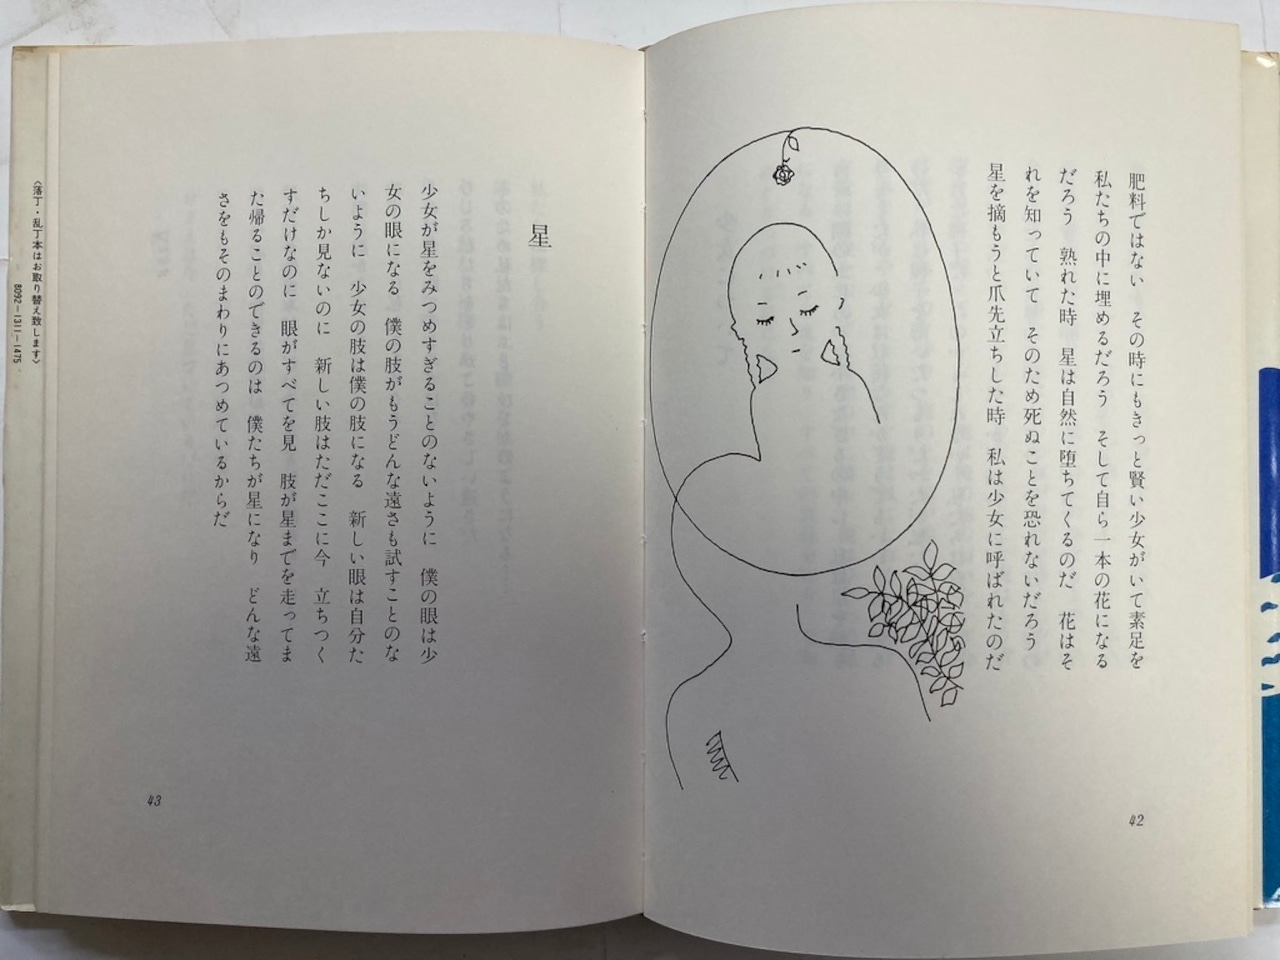 肥料ではない その時にもきっと賢い少女がいて素足を
私たちの中に埋めるだろう そして自ら一本の花になる
だろう 熟れた時 星は自然に堕ちてくるのだ 花はそ
れを知っていて そのため死ぬことを恐れないだろう
星を摘もうと爪先立ちした時 私は少女に呼ばれたのだ
42
星
少女が星をみつめすぎることのないように 僕の眼は少
女の眼になる 僕の肢がもうどんな遠さも試すことのな
いように 少女の肢は僕の肢になる 新しい眼は自分た
ちしか見ないのに 新しい肢はただここに今 立ちつく
すだけなのに 眼がすべてを見 肢が星までを走ってま
た帰ることのできるのは 僕たちが星になり どんな遠
さをもそのまわりにあつめているからだ
43
〈落丁・乱丁本はお取り替え致します〉
8092-1311-1475